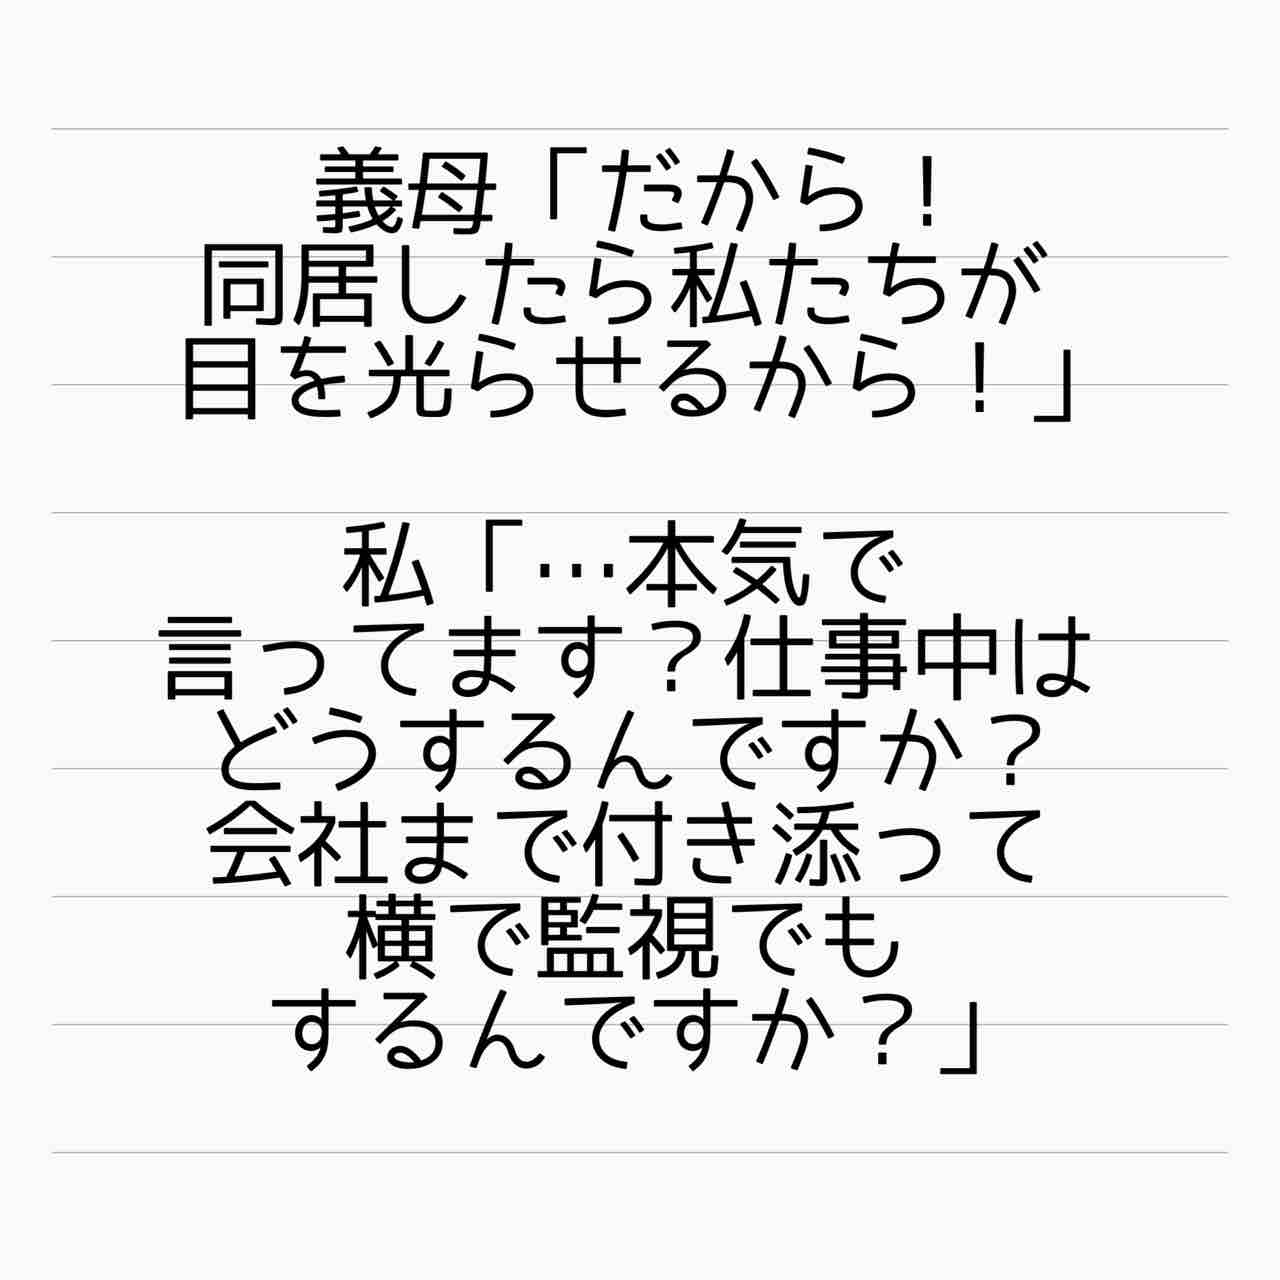 義母「だから！
同居したら私たちが
目を光らせるから！」
私「…本気で
言ってます？仕事中は
どうするんですか？
会社まで付き添って
横で監視でも
するんですか？」